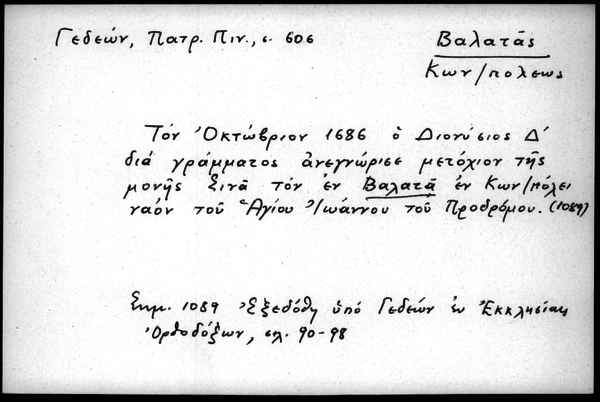 Γεδεών, Πατρ. Πιν., σ. 606
Βαλατᾶς
Κων/πόλεως
Τόν Ὀκτώβριον 1686 ὁ Διονύσιος Δ΄
διά γράμματος ἀνεγνώρισε μετόχιον τῆς
μονῆς Σινᾶ τόν ἐν Βαλατᾷ ἐν Κων/πόλει
ναόν τοῦ Ἁγίου Ἰωάννου τοῦ Προδρόμου. (1089)
Σημ. 1089 Ἐξεδόθη ὑπό Γεδεών ἐν Ἐκκλησίαις
Ὀρθοδόξων, σελ. 90-98